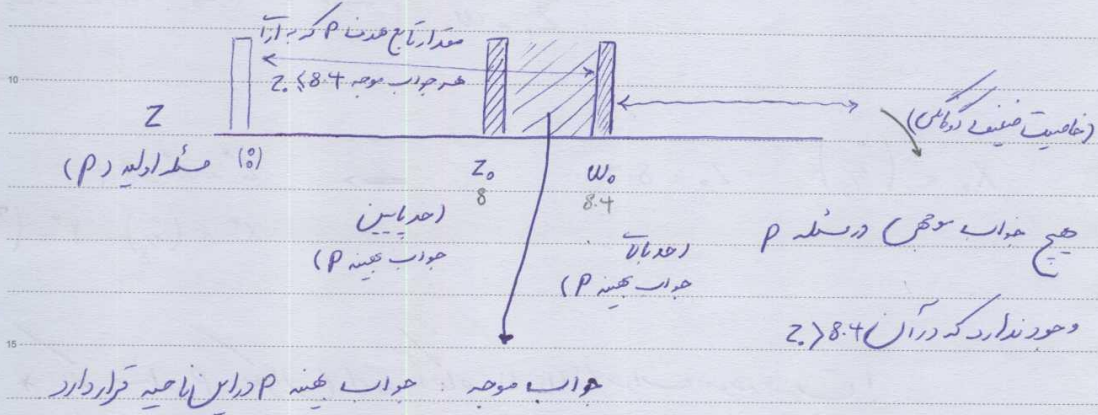 مقدار تابع هدف P که به ازاء
هر جواب موجه Z₀ ≤ 8.4
10
(خاصیت ضعیف دوگانگی)
Z
مسئله اولیه (P)
(0 0)
Z₀
W₀
8
8.4
(حد پایین
جواب بهینه P)
(حد بالا
جواب بهینه P)
هیچ جواب موجهی در مسئله P
وجود ندارد که در آن Z₀ > 8.4
15
جواب موجه جواب بهینه P در این ناحیه قرار دارد